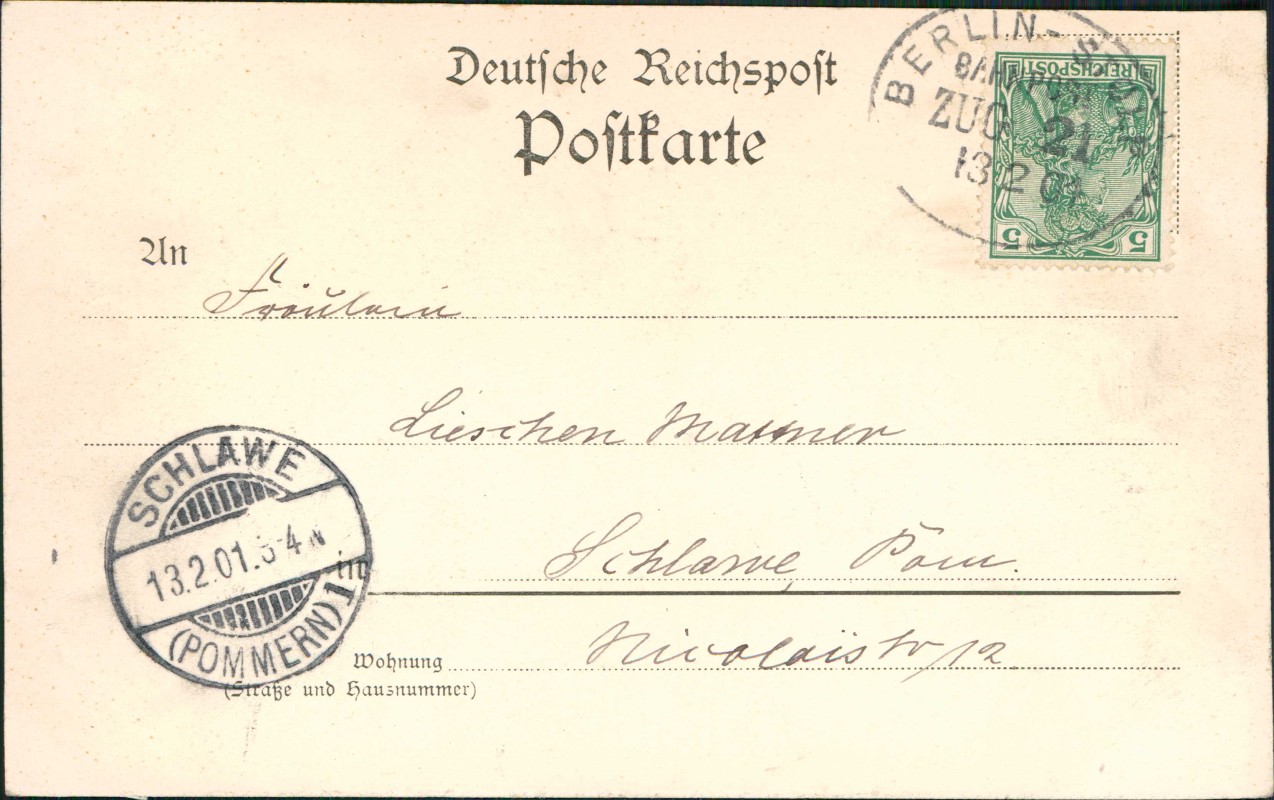 Deutsche Reichspost
Postkarte
BERLIN-
BAHNPOST
ZUG 21
13 2 01
REICHSPOST
5 5
An
Fräulein
Lieschen
in Schlawe Pom.
Wohnung Nicolaistr 12
(Straße und Hausnummer)
SCHLAWE
13.2.01. 3-4 N
(POMMERN) 1